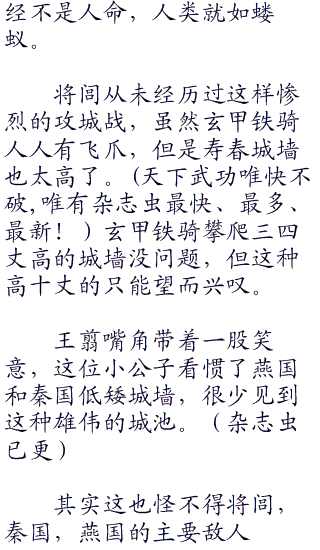 经不是人命，人类就如蝼
蚁。
将闾从未经历过这样惨
烈的攻城战，虽然玄甲铁骑
人人有飞爪，但是寿春城墙
也太高了。(天下武功唯快不
破,唯有杂志虫最快、最多、
最新！) 玄甲铁骑攀爬三四
丈高的城墙没问题，但这种
高十丈的只能望而兴叹。
王翦嘴角带着一股笑
意，这位小公子看惯了燕国
和秦国低矮城墙，很少见到
这种雄伟的城池。（杂志虫
已更）
其实这也怪不得将闾，
秦国，燕国的主要敌人